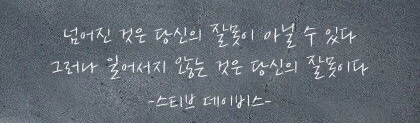 넘어진 것은 당신의 잘못이 아닐 수 있다
그러나 일어서지 않는 것은 당신의 잘못이다
-스티브 데이비스-